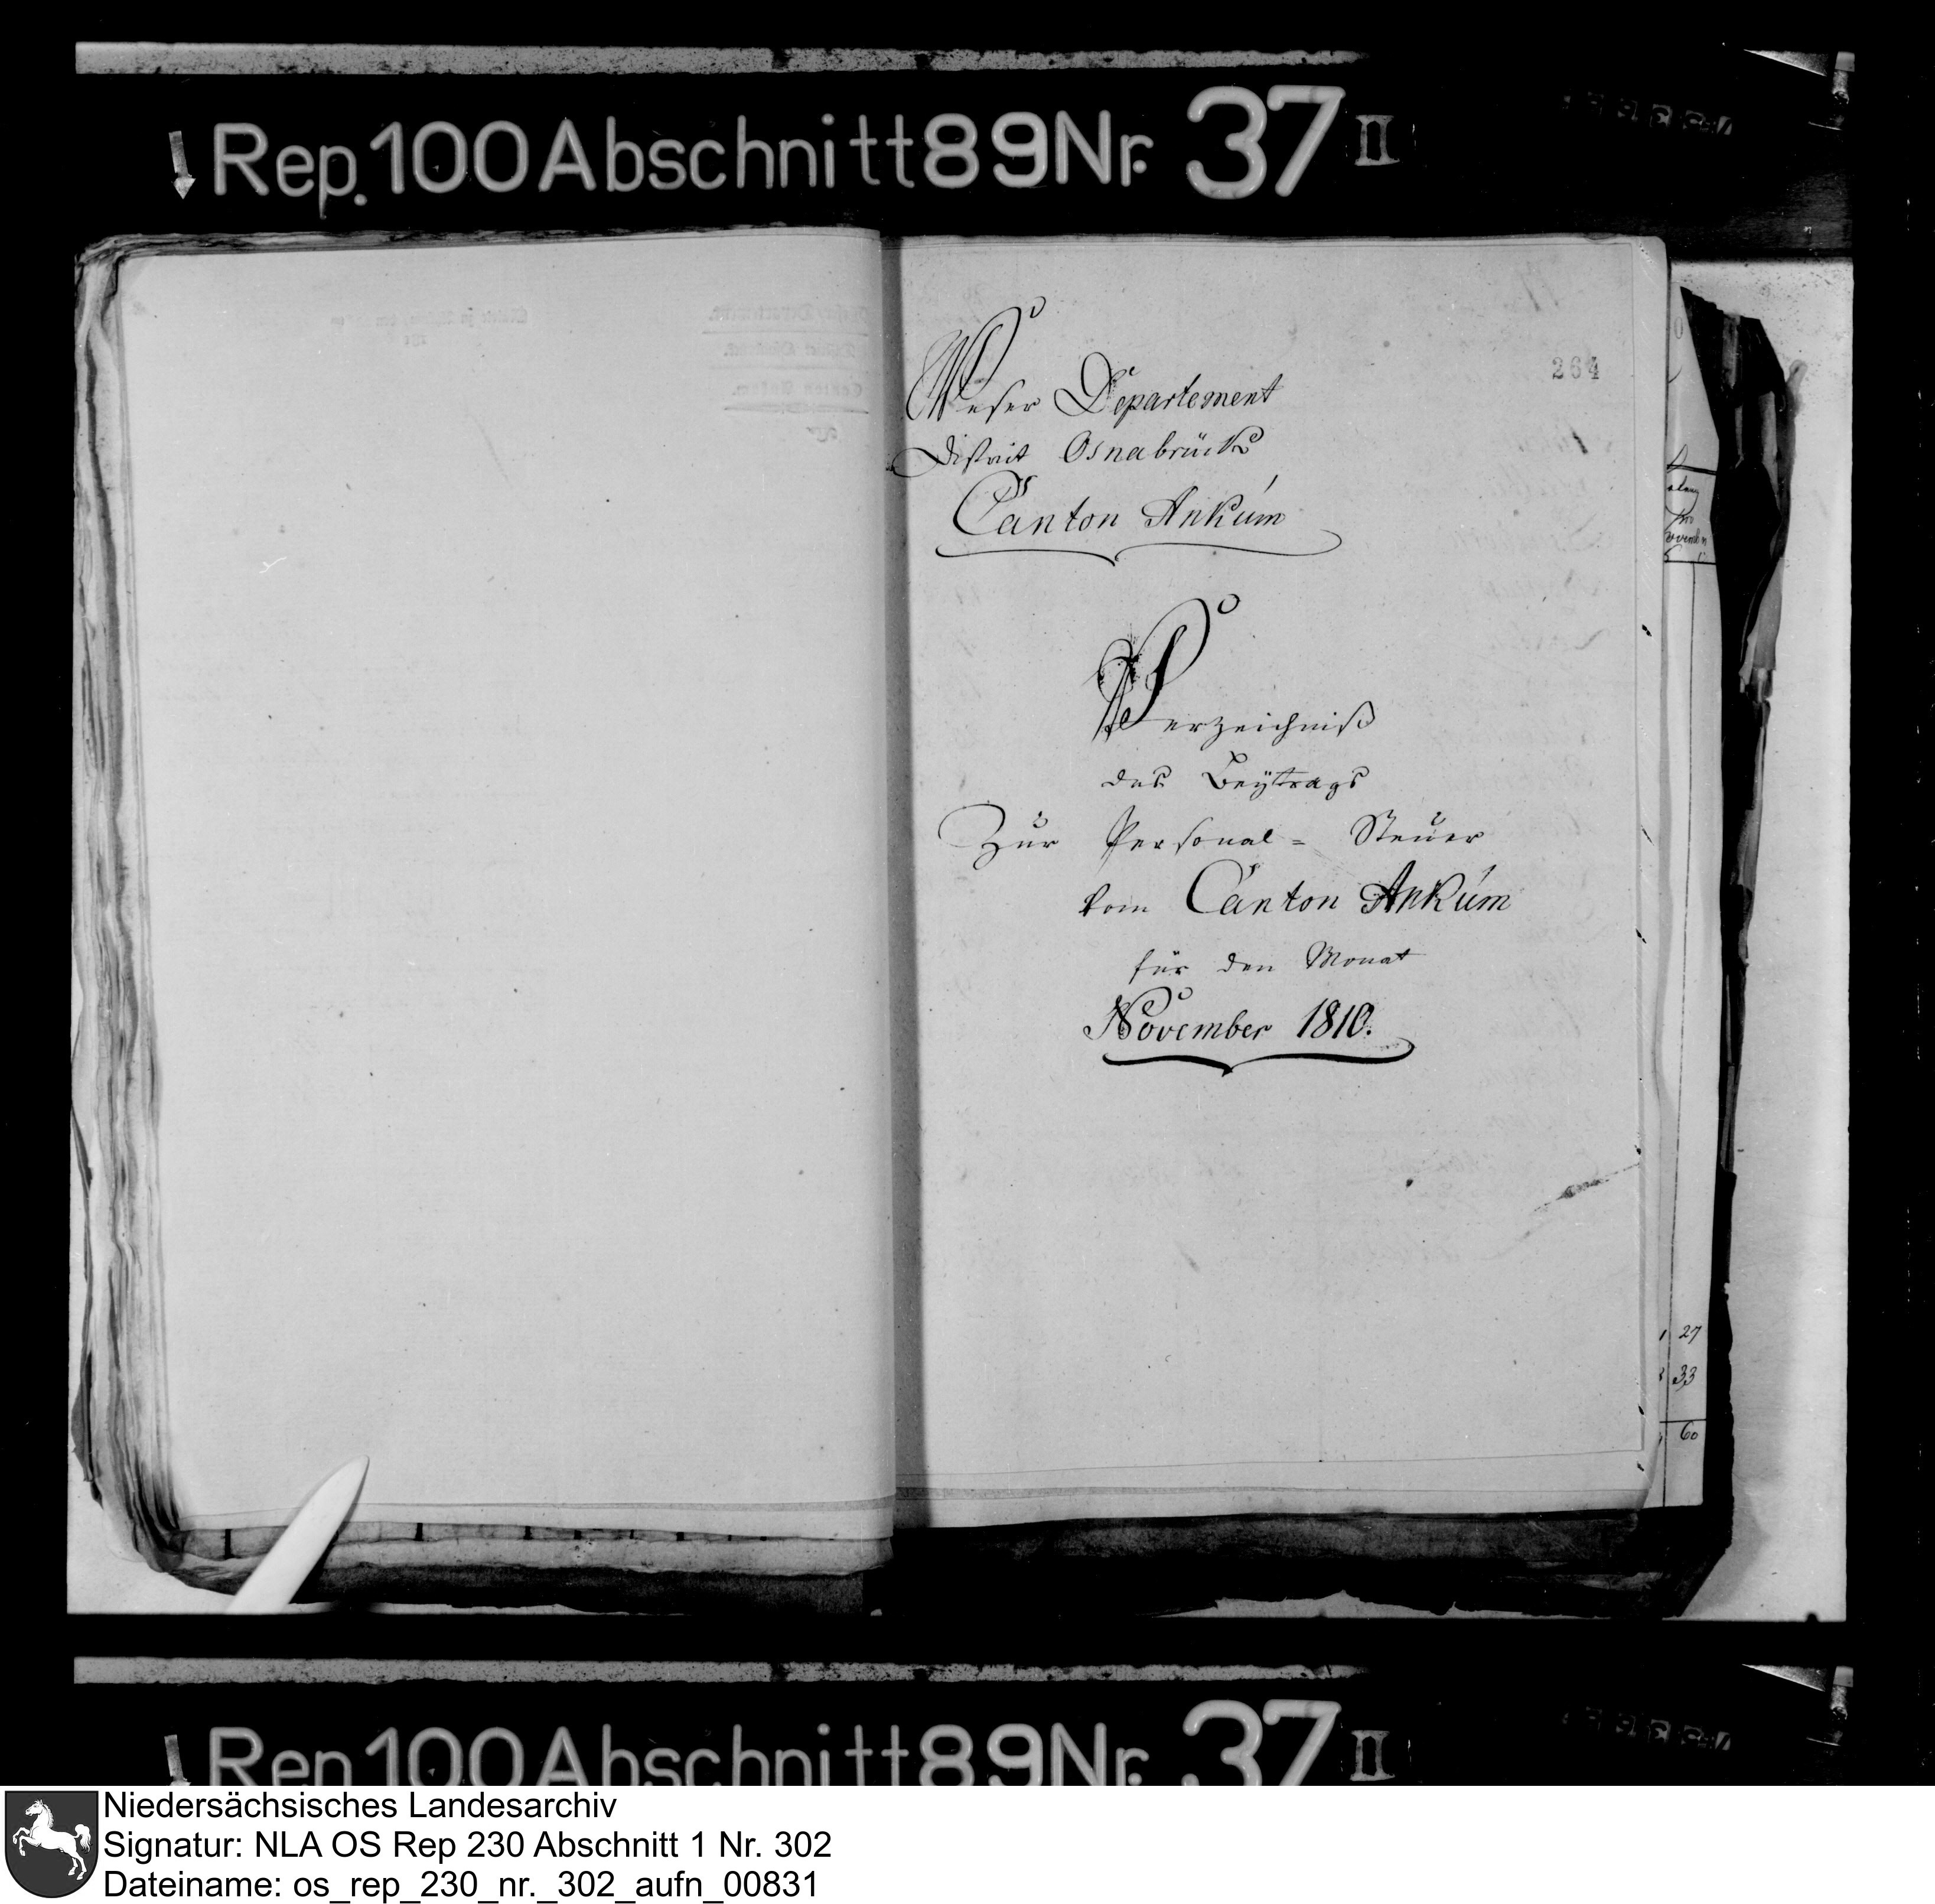 Rep. 100 Abschnitt 89 Nr. 37 II
264
Weser Departement
District Osnabrück
Canton Ankum
Verzeichniß
des Beytrags
Zur Personal = Steuer
vom Canton Ankum
für den Monat
November 1810.
27
33
60
Rep 100 Abschnitt 89 Nr. 37 II
Niedersächsisches Landesarchiv
Signatur: NLA OS Rep 230 Abschnitt 1 Nr. 302
Dateiname: os_rep_230_nr._302_aufn_00831